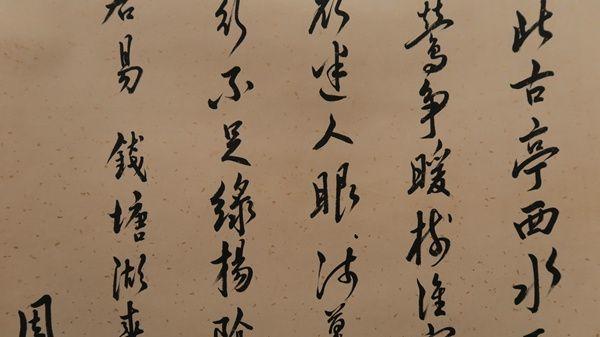 北古亭西水
鶯爭暖樹誰家
欲迷人眼淺草
行不足綠楊陰
居易 錢塘湖春
周